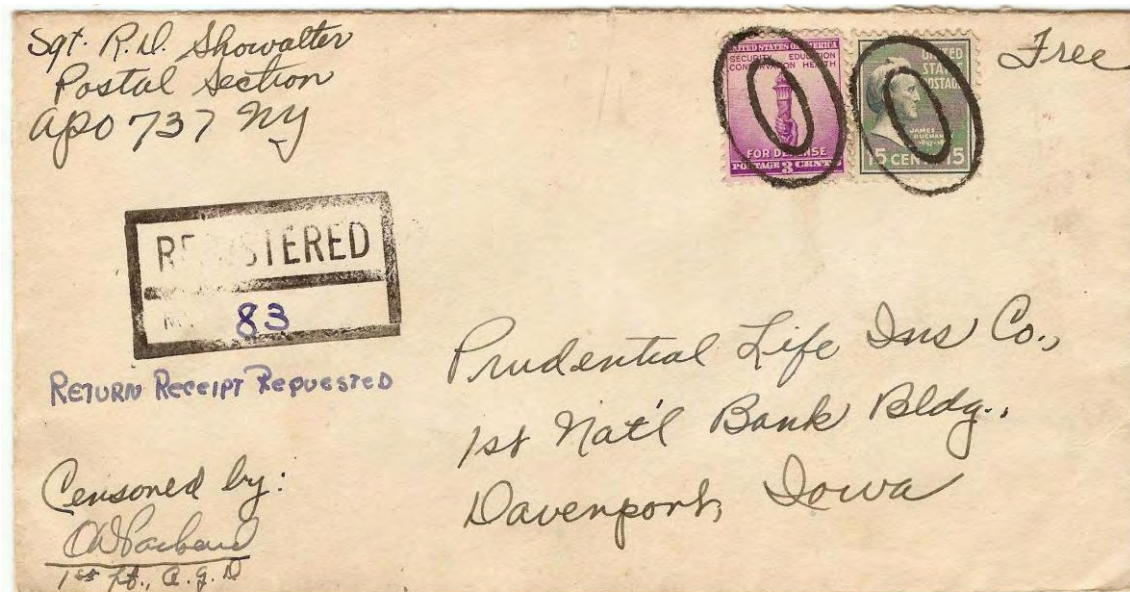 Sgt. R.D. Showalter
Postal Section
APO 737 NY
Free
UNITED STATES OF AMERICA
SECURITY EDUCATION
CONSERVATION HEALTH
FOR DEFENSE
POSTAGE 3 CENTS
UNITED
STATES
POSTAGE
JAMES
BUCHANAN
15 CENTS 15
REGISTERED
No. 83
RETURN RECEIPT REQUESTED
Prudential Life Ins Co.,
1st Nat'l Bank Bldg.,
Davenport, Iowa
Censored by:
1st Lt., A.G.D